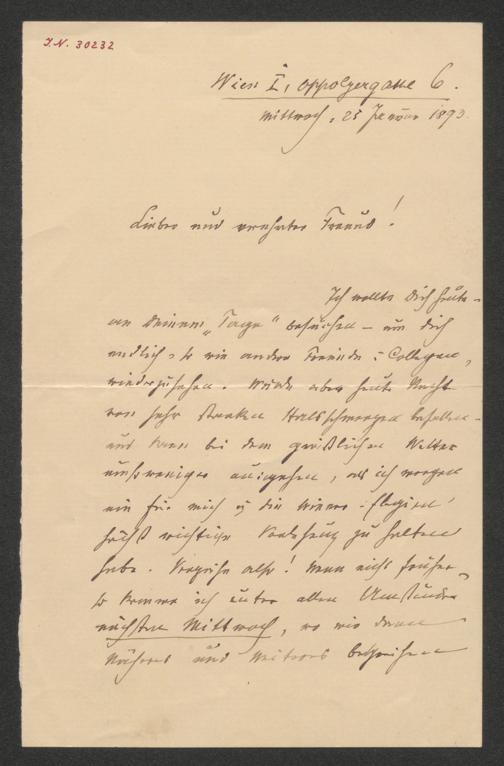 I.N. 30232
Wien I, Oppolzergasse 6.
Mittwoch, 25 Januar 1893.
Lieber und verehrter Freund!
Ich wollte Dich heute –
an Deinem „Tage“ besuchen – um Dich
endlich, so wie andere Freunde u. Collegen,
wiederzusehen. Wurde aber heute Nacht
von sehr starken Halsschmerzen befallen –
und kann bei dem gräßlichen Wetter
umsoweniger ausgehen, als ich morgen
ein für mich u. die Wiener
höchst wichtige zu halten
habe. Verzeihe also! Wenn nicht früher –
so komme ich unter allen Umständen
nächsten Mittwoch, wo wir dann
Näheres und Weiteres besprechen